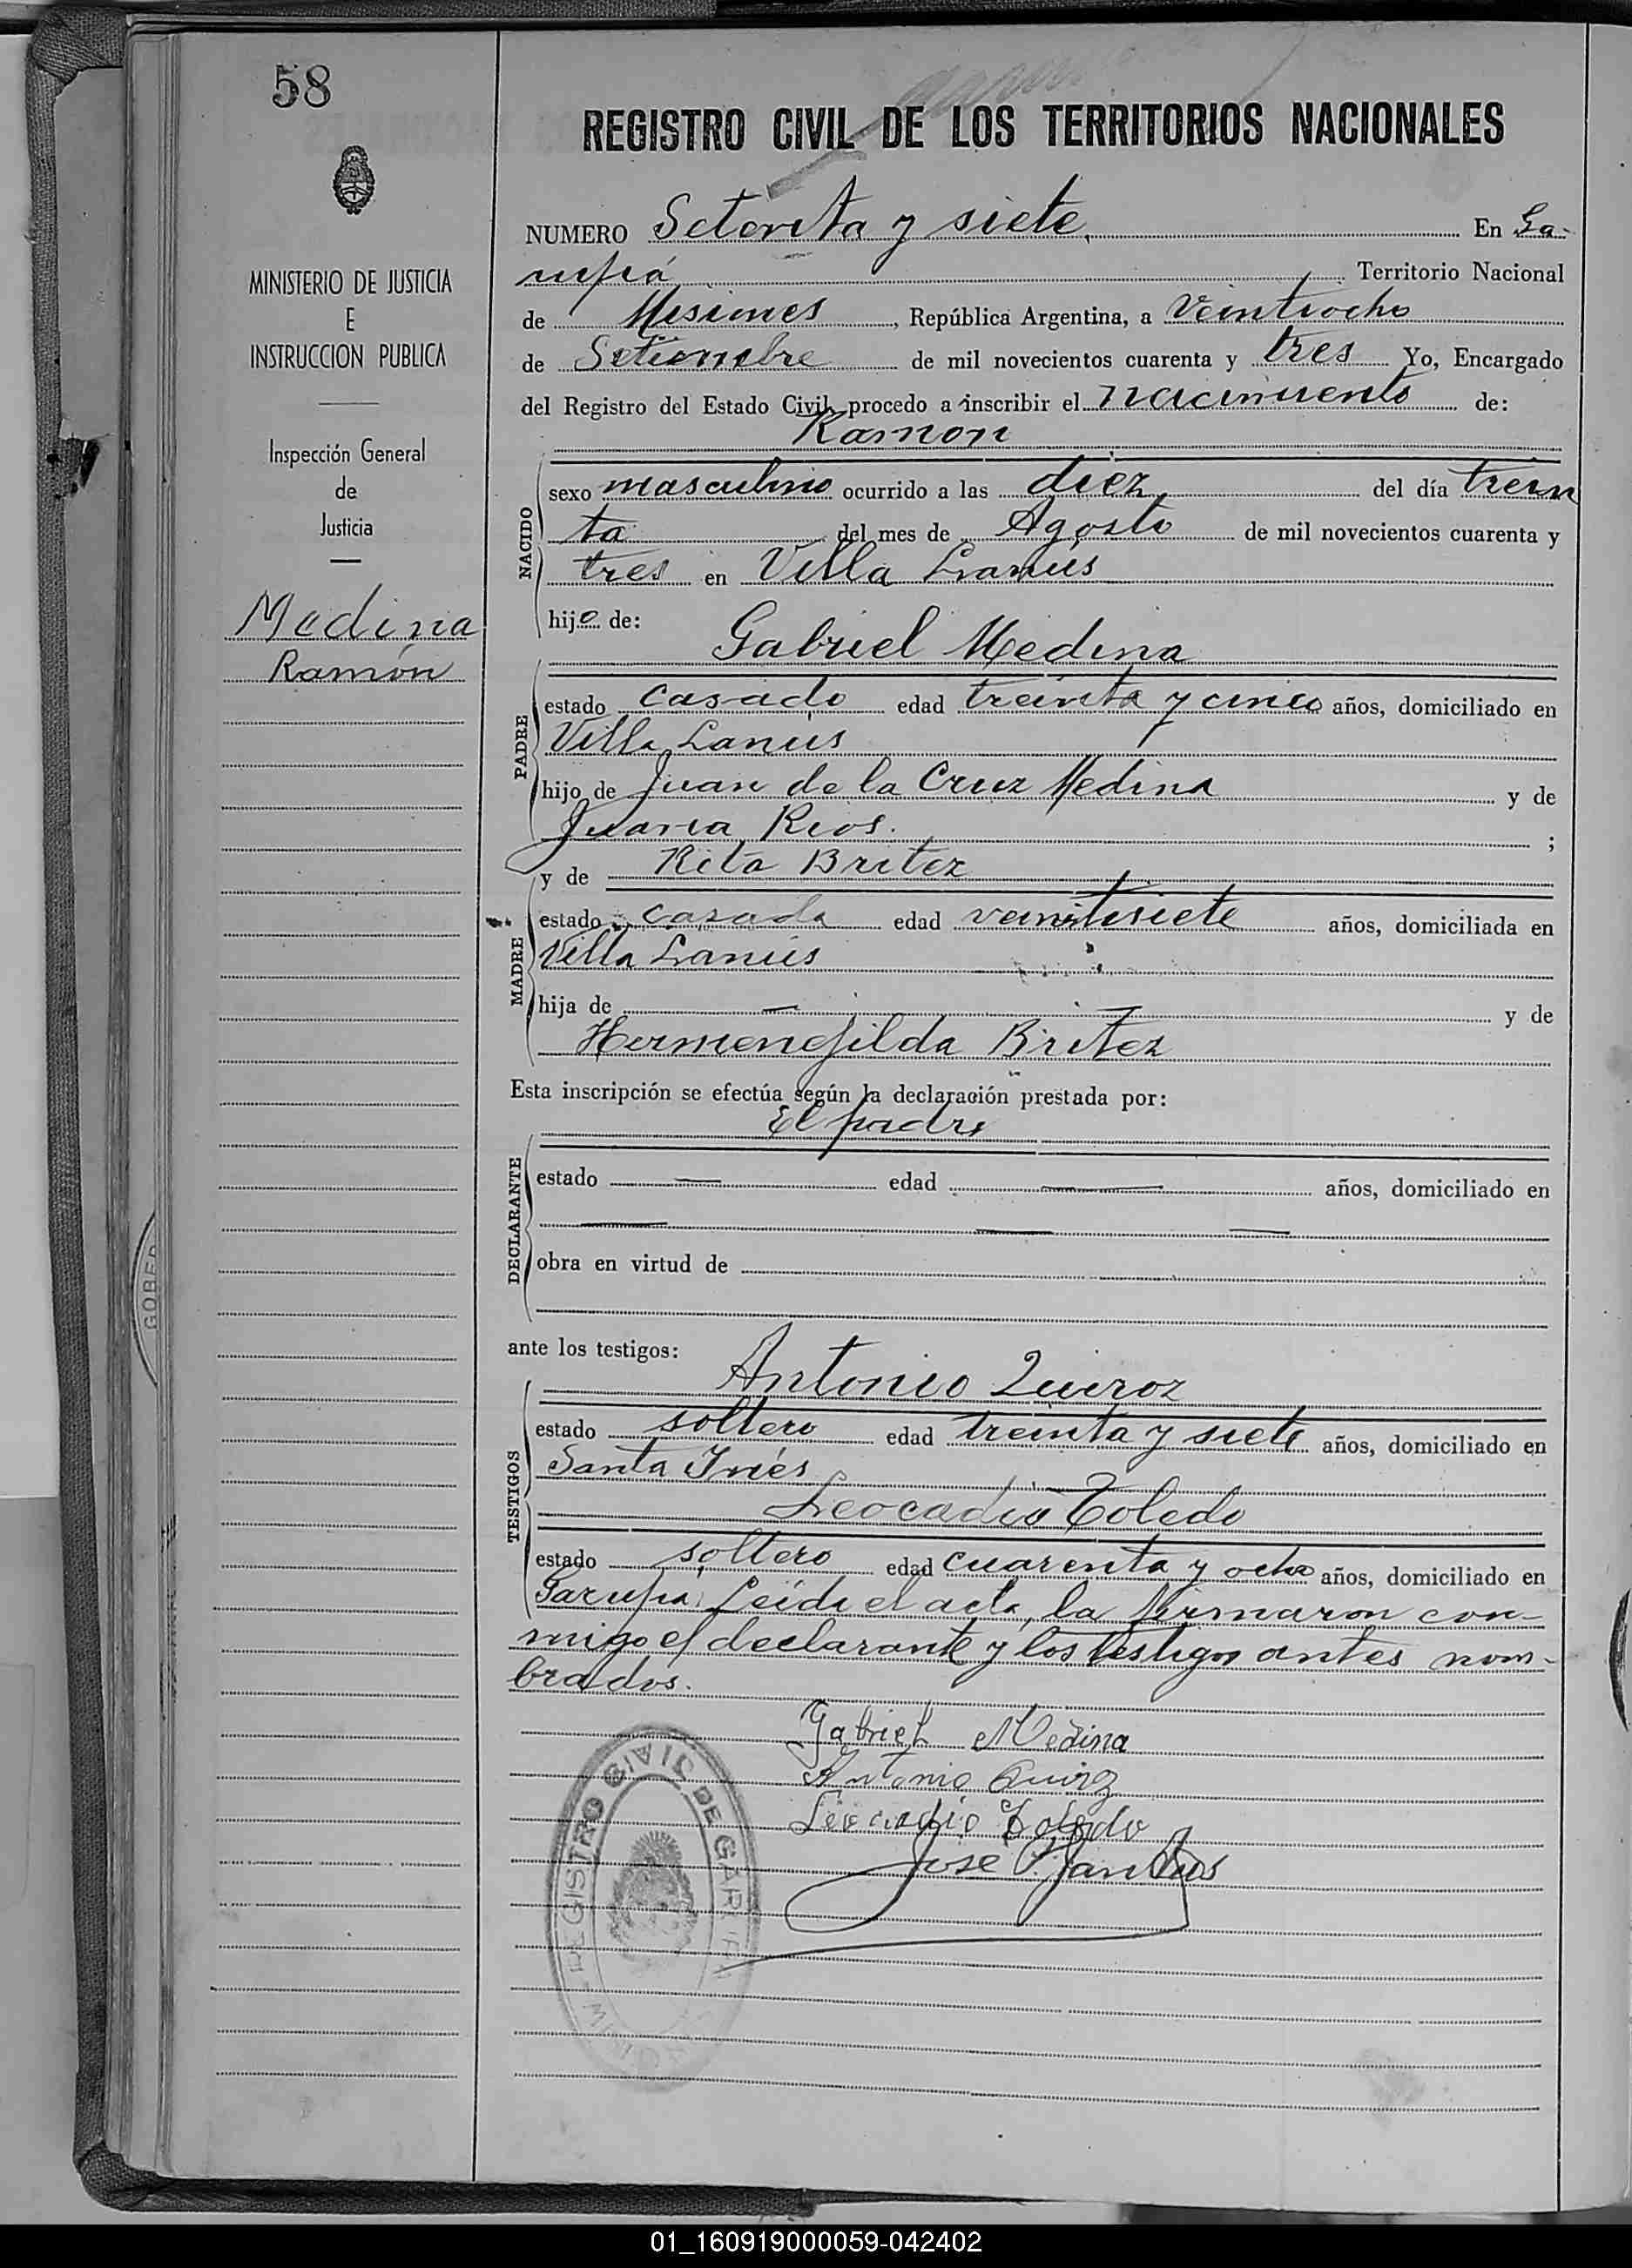 58
REGISTRO CIVIL DE LOS TERRITORIOS NACIONALES
MINISTERIO DE JUSTICIA
E
INSTRUCCION PUBLICA
Inspección General
de
Justicia
Medina
Ramón
NUMERO Setenta y siete, En Ga-
rupá Territorio Nacional
de Misiones, República Argentina, a veintiocho
de Setiembre de mil novecientos cuarenta y tres Yo, Encargado
del Registro del Estado Civil, procedo a inscribir el nacimiento de:
Ramon
NACIDO
sexo masculino ocurrido a las diez del día trein
ta del mes de Agosto de mil novecientos cuarenta y
tres en Villa Lanús
hijo de:
Gabriel Medina
PADRE
estado casado edad treinta y cinco años, domiciliado en
Villa Lanús
hijo de Juan de la Cruz Medina y de
Juana Rios. ;
y de Rita Britez
MADRE
estado casada edad veintisiete años, domiciliada en
Villa Lanús
hija de — — y de
Hermenejilda Britez
Esta inscripción se efectúa según la declaración prestada por:
El padre
DECLARANTE
estado — edad — años, domiciliado en
— — —
obra en virtud de
ante los testigos:
Antonio Quiroz
TESTIGOS
estado soltero edad treinta y siete años, domiciliado en
Santa Inés
Leocadio Toledo
estado soltero edad cuarenta y ocho años, domiciliado en
Garupá. Leída el acta, la firmaron con-
migo el declarante y los testigos antes nom-
brados.
Gabriel Medina
Antonio Quiroz
Leocadio Toledo
Jose
REGISTRO CIVIL DE GARUPA
GOBER
01_160919000059-042402